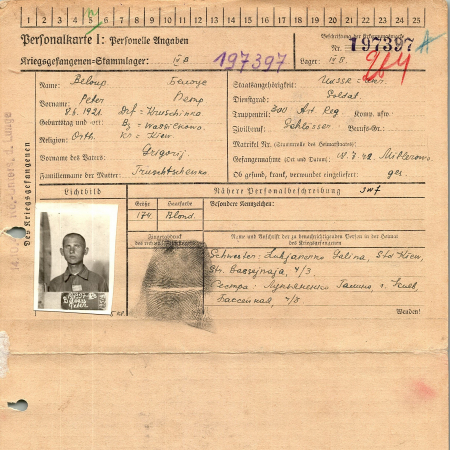 1 2 3 4 5 6 7 8 9 10 11 12 13 14 15 16 17 18 19 20 21 22 23 24 25
Personalkarte I: Personelle Angaben
Beschriftung der Erkennungsmarke
Nr. 197397
Kriegsgefangenen-Stammlager: IV B 197397
Lager: IV B 204
Des Kriegsgefangenen
Name: Белоус
Staatsangehörigkeit:
Vorname: Peter Петр
Dienstgrad: Soldat
Geburtstag und -ort: 8.6. 1921.
Truppenteil: 300 Art. Reg Komp. usw.:
Religion: Orth.
Zivilberuf: Schlosser Berufs-Gr.:
Kr. Kiew
Matrikel Nr. (Stammrolle des Heimatstaates):
Vorname des Vaters: Grigorij
Gefangennahme (Ort und Datum): Millerowo
Familienname der Mutter:
Ob gesund, krank, verwundet eingeliefert: ges.
Lichtbild
Nähere Personalbeschreibung
Größe Haarfarbe Besondere Kennzeichen:
174 Blond.
Fingerabdruck
des rechten
Name und Anschrift der zu benachrichtigenden Person in der Heimat
des Kriegsgefangenen
Schwester: Lukjanenko Galina, Std Kiew,
Str. Bassejnaja, 4/3
Сестра: Лукьяненко Галина, г. Киев,
Бассейная, 4/3
Wenden!